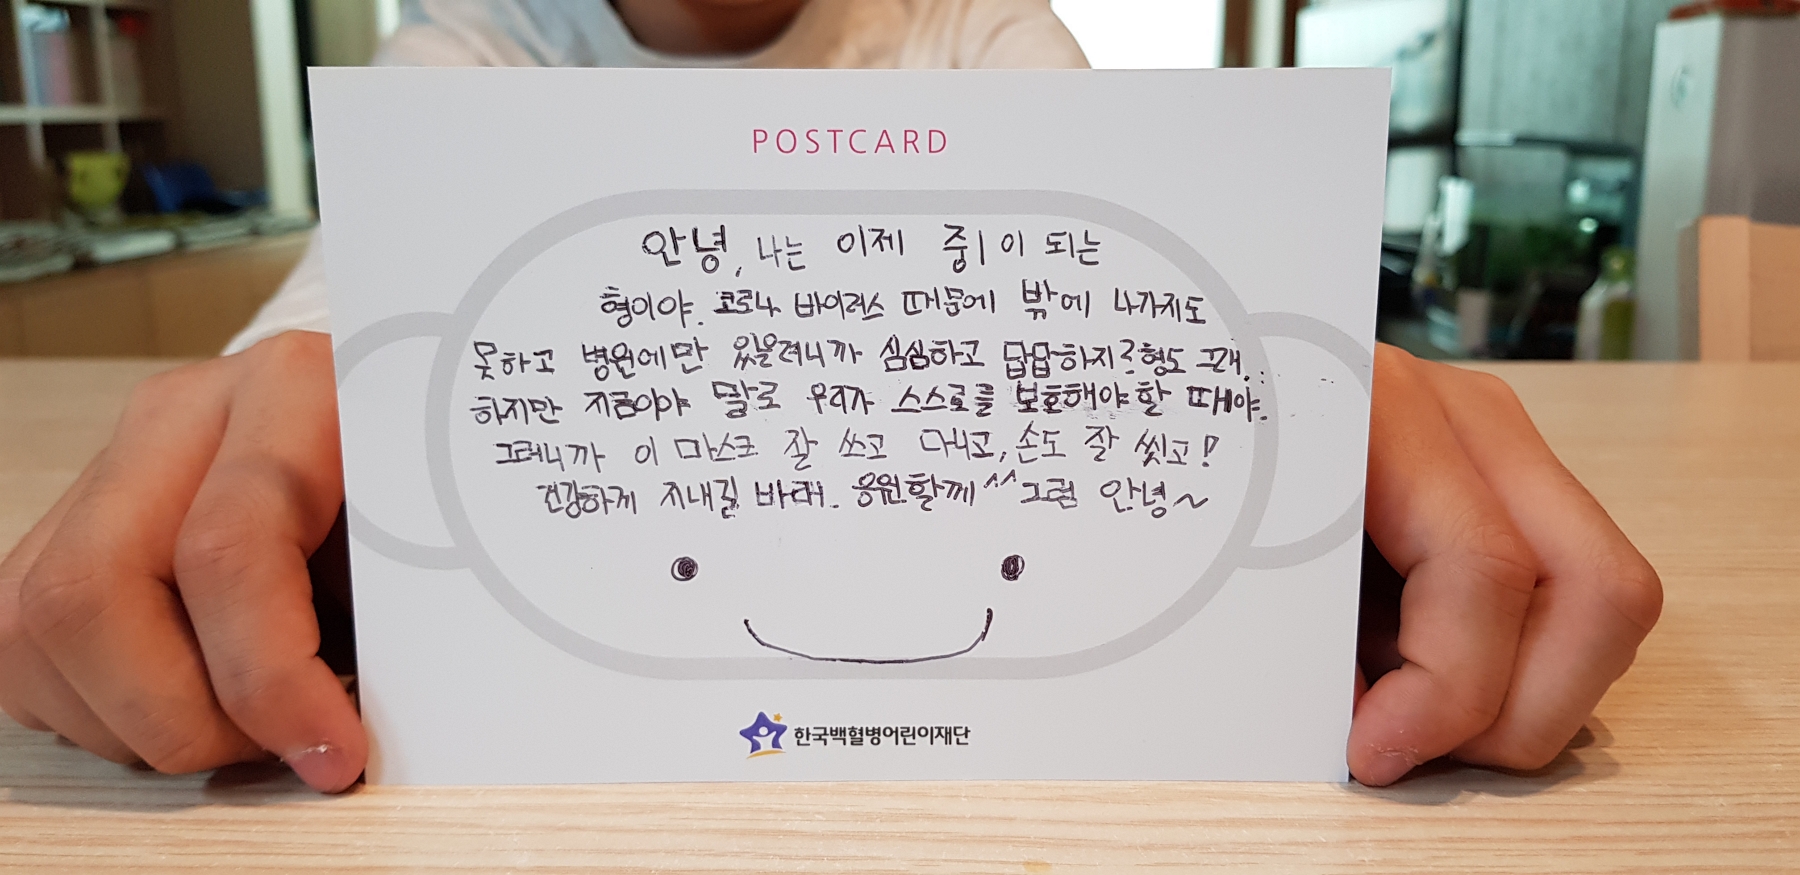 POSTCARD
안녕, 나는 이제 중1이 되는
형이야. 코로나 바이러스 때문에 밖에 나가지도
못하고 병원에만 있을려니까 심심하고 답답하지? 형도 그래..
하지만 지금이야 말로 우리가 스스로를 보호해야 할 때야.
그러니까 이 마스크 잘 쓰고 다니고, 손도 잘 씻고!
건강하게 지내길 바래. 응원할께 ^^ 그럼 안녕~
한국백혈병어린이재단